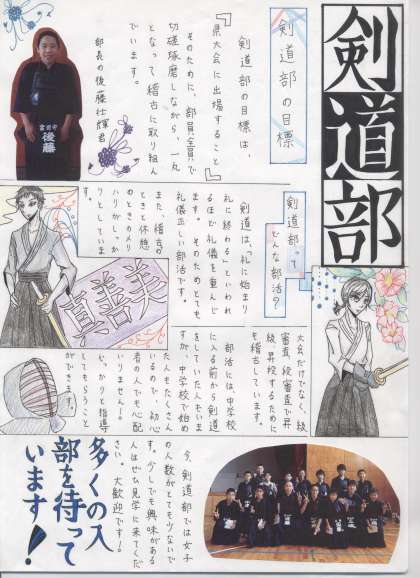 剣道部
剣道部の目標
剣道部の目標は、
『県大会に出場すること』
そのために、部員全員で
切磋琢磨しながら、一丸
となって稽古に取り組ん
でいます。
部長の後藤壮輝君
後藤
剣道部って
どんな部活？
剣道は、「礼に始まり
礼に終わる」といわれ
るほど礼儀を重んじ
ます。そのためとても
礼儀正しい部活です。
また、稽古の
ときと休憩
のときのメリ
ハリがしっか
りとしていま
す。
真善美
大会だけでなく、級
審査、段審査で昇
級、昇段するために
も稽古しています。
部活には、中学校
に入る前から剣道
をしていた人もいま
すが、中学校で始め
た人もたくさん
いるので、初心
者の人でも心配
いりません！
しっかりと指導
してもらうこと
ができます。
今、剣道部では女子
の人数がとても少ないで
す。少しでも興味がある
人はぜひ見学に来てくだ
さい。大歓迎です！
多くの入
部を待って
います！